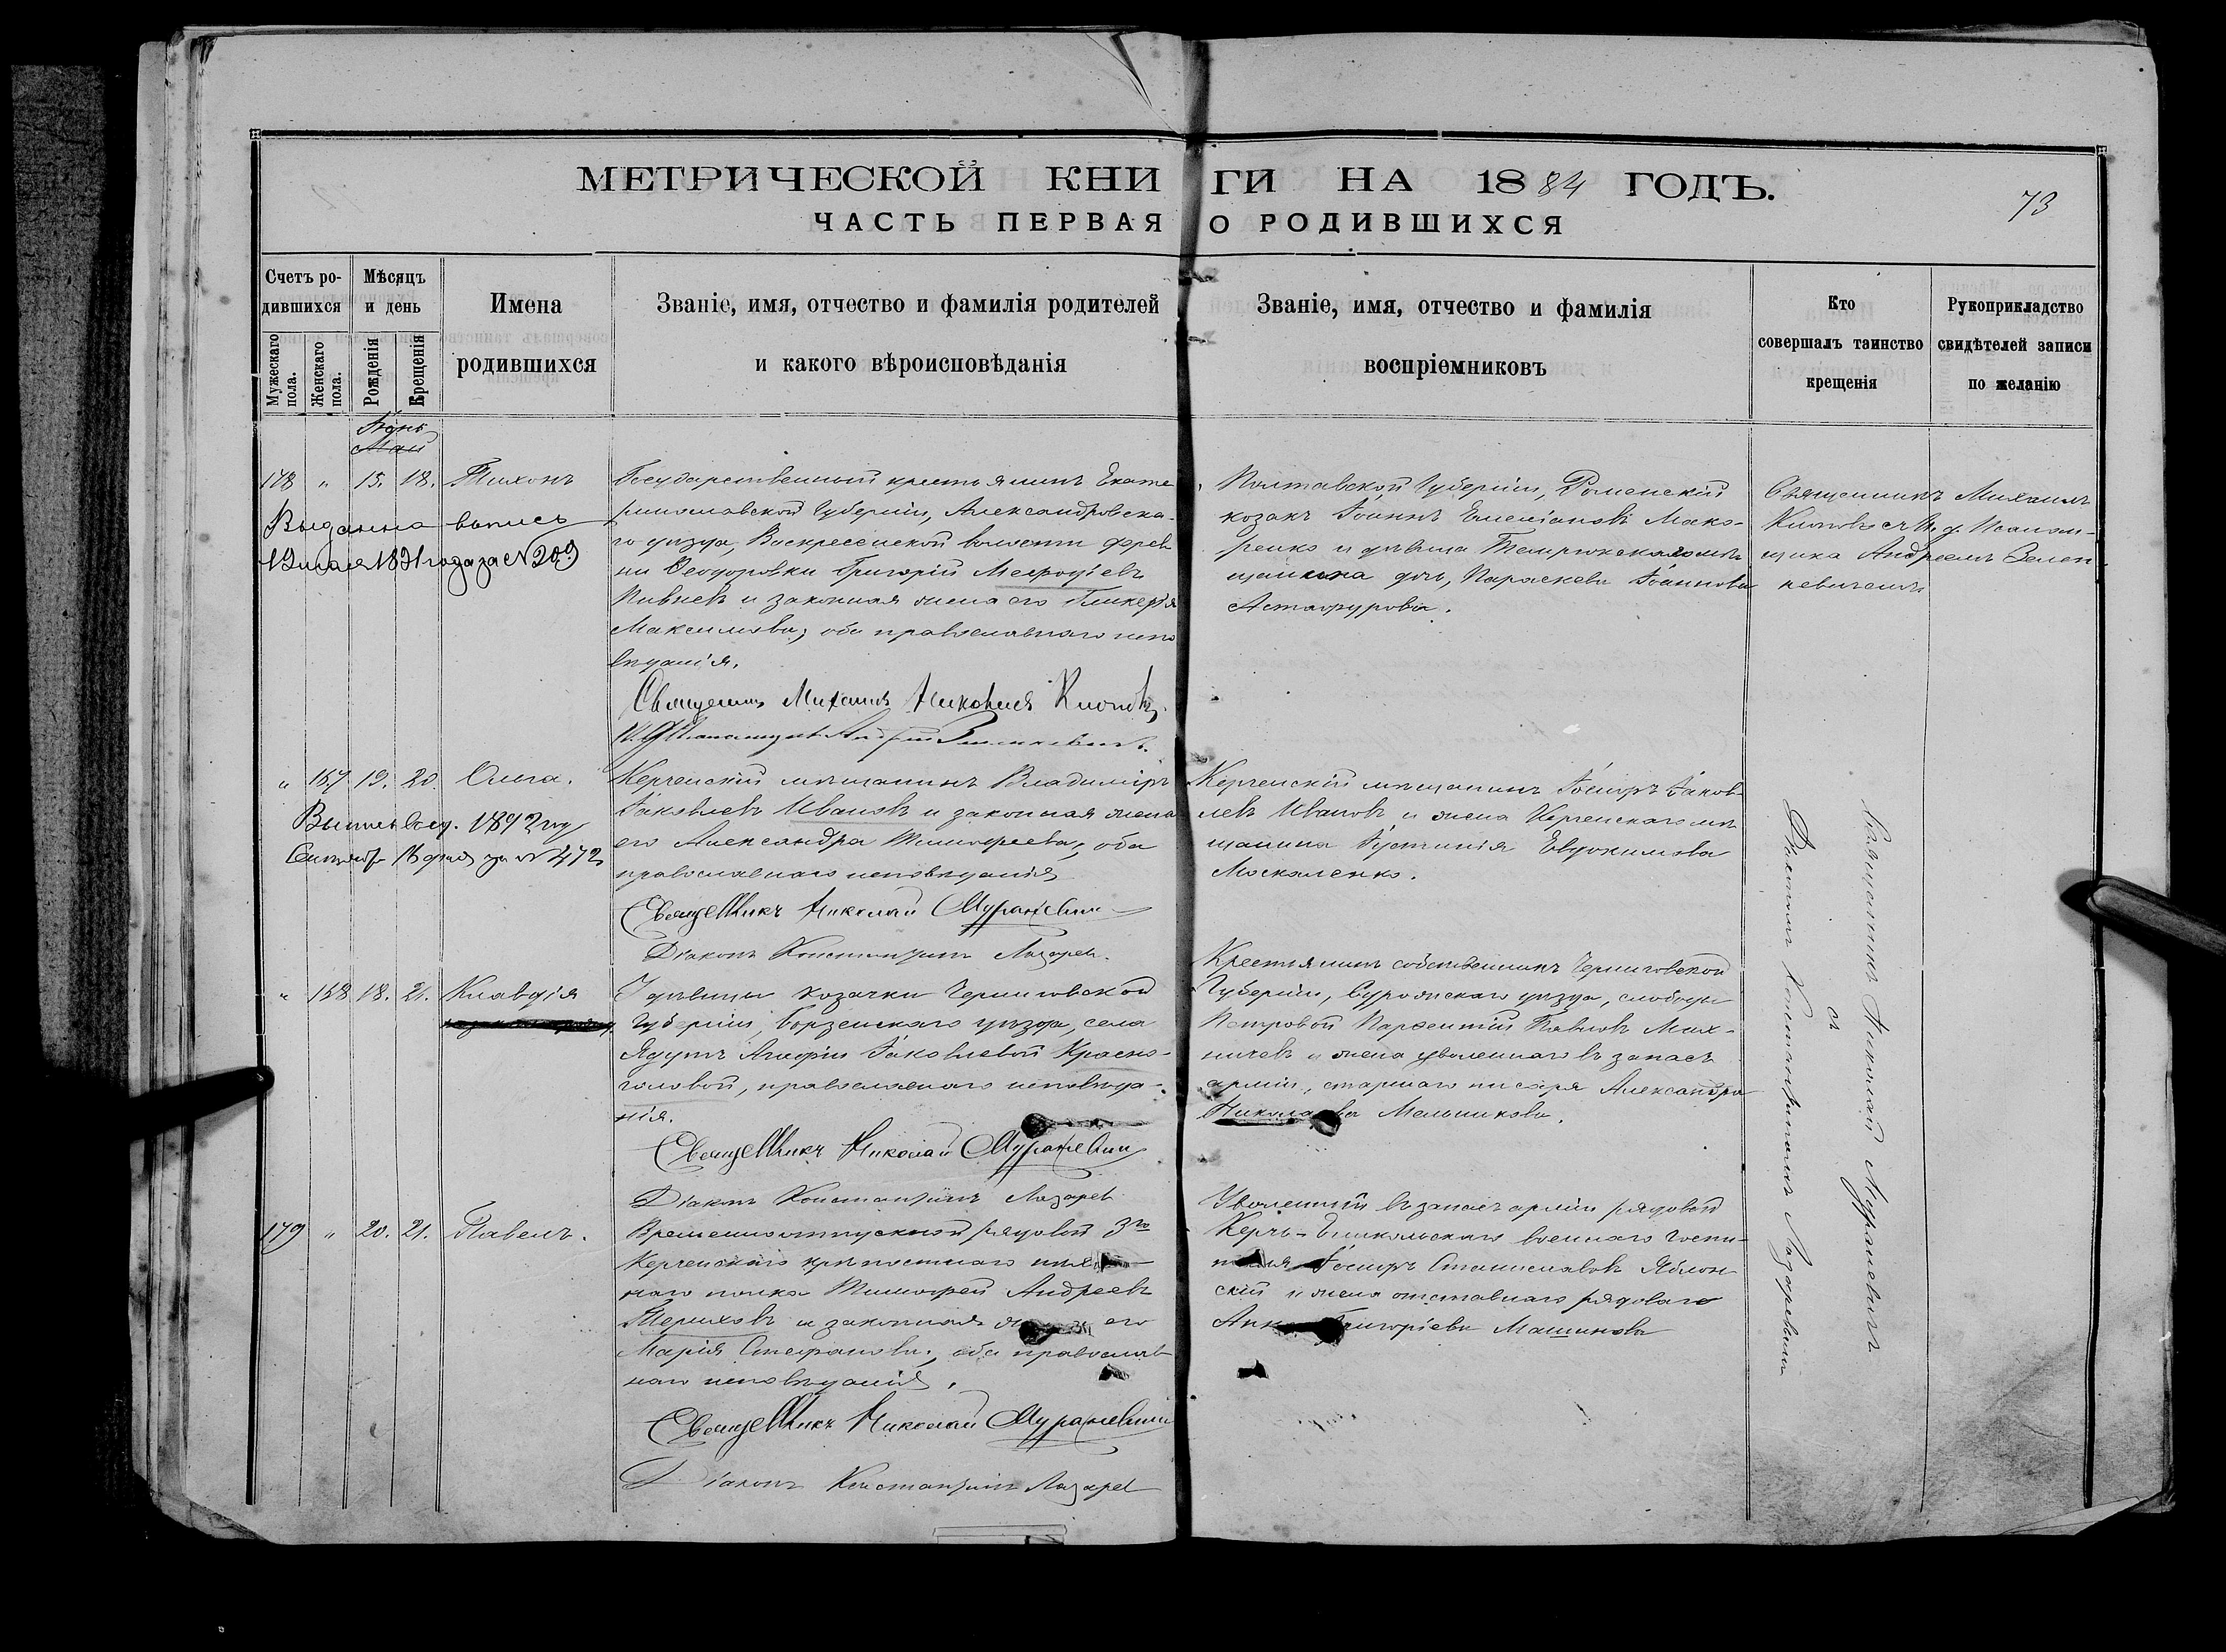 МЕТРИЧЕСКОЙ КНИГИ НА 1884 ГОДЪ.
73
ЧАСТЬ ПЕРВАЯ О РОДИВШИХСЯ
Счетъ ро-
дившихся
Мужескаго пола.
Женскаго пола.
Мѣсяцъ
и день
Рожденія
Крещенія
Имена
родившихся
Званіе, имя, отчество и фамилія родителей
и какого вѣроисповѣданія
Званіе, имя, отчество и фамилія
воспріемниковъ
Кто
совершалъ таинство
крещенія
Рукоприкладство
свидѣтелей записи
по желанію
Іюнь
Май
178 " 15. 18. Тихонъ
Выданна выпись
Государственный крестьянинъ Екате
ринославской Губерніи, Александровска-
го уѣзда, Воскресенской волости дерев
ни Ѳеодоровки Григорій Меѳодіевъ
Пивневъ и законная жена его Гликерія
Максимова, оба православнаго испо
вѣданія.
Священникъ Михаилъ
Андрей
Полтавской Губерніи, Роменскій
козакъ Іоаннъ Емеліановъ Мако-
ренко и дѣвица Темрюкскаго мѣ
щанина дочь, Параскева Іоаннова
Священникъ Михаилъ
Андреемъ Зелен
кевичемъ
" 167 19. 20. Ольга.
1892 году
за № 472
Керченскій мѣщанинъ Владиміръ
Іаковлевъ Ивановъ и законная жена
его Александра Тимофеева, оба
православнаго исповѣданія
Священникъ Николай Мураневичъ
Діаконъ Константинъ Лазарев
Керченскій мѣщанинъ Іосифъ Іаков-
левъ Ивановъ и жена Керченскаго мѣ
щанина Іустинія Евдокимова
Москаленко.
" 168 18. 21. Клавдія
У дѣвицы козачки Черниговской
Губерніи, Борзенскаго уѣзда, села
Ядутъ Агафіи Іаковлевой Красно-
головой, православнаго исповѣда-
нія.
Священникъ Николай Мураневичъ
Діаконъ Константинъ Лазарев
Крестьянинъ собственникъ Черниговской
Губерніи, Суражскаго уѣзда, слободы
Петровой Парѳентій Павловъ Мих-
ничевъ и жена уволеннаго въ запасъ
арміи, старшаго писаря Александра
Николаева Мельникова.
179 " 20. 21. Павелъ.
Временноотпускной рядовой 3го
Керченскаго крѣпостнаго
наго полка Тимофей Андреевъ
и законная его
Марія Стефанова, оба православ
наго исповѣданія.
Священникъ Николай Мураневичъ
Діаконъ Константинъ Лазарев
Уволенный въ запасъ арміи рядовой
Керчь-Еникольскаго военнаго госпи-
Іосифъ Станиславовъ Яблон
скій и жена отставнаго рядоваго
Анна Григоріева Машинова
Священникъ Николай Мураневичъ
съ
Діакономъ Константиномъ Лазаревымъ